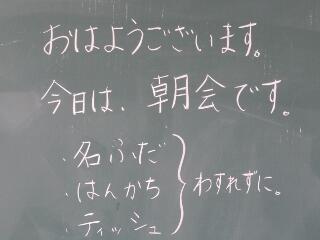 おはようございます。
今日は、朝会です。
・名ふだ
・はんかち
・ティッシュ
わすれずに。